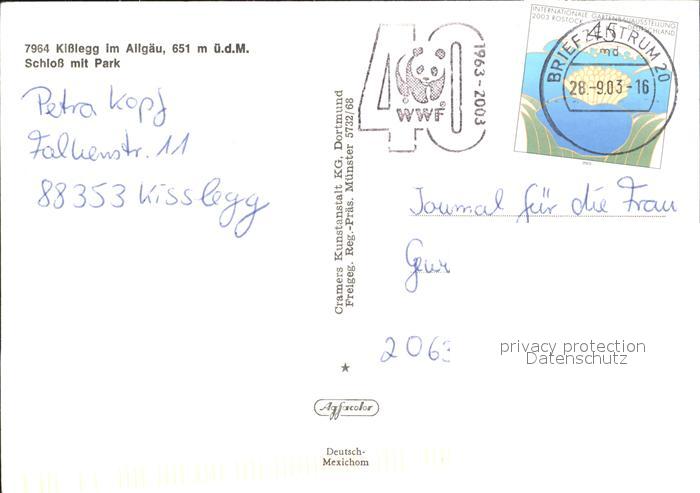 7964 Kißlegg im Allgäu, 651 m ü.d.M.
Schloß mit Park
Petra Kopf
Falkenstr. 11
88353 Kisslegg
40
WWF
1963-2003
INTERNATIONALE GARTENBAUAUSSTELLUNG
2003 ROSTOCK
45
BRIEFZENTRUM 20
md
28.-9.03-16
Cramers Kunstanstalt KG. Dortmund
Freigeg. Reg.-Präs. Münster 5732/68
Journal für die Frau
2063
privacy protection
Datenschutz
Agfacolor
Deutsch-
Mexichom